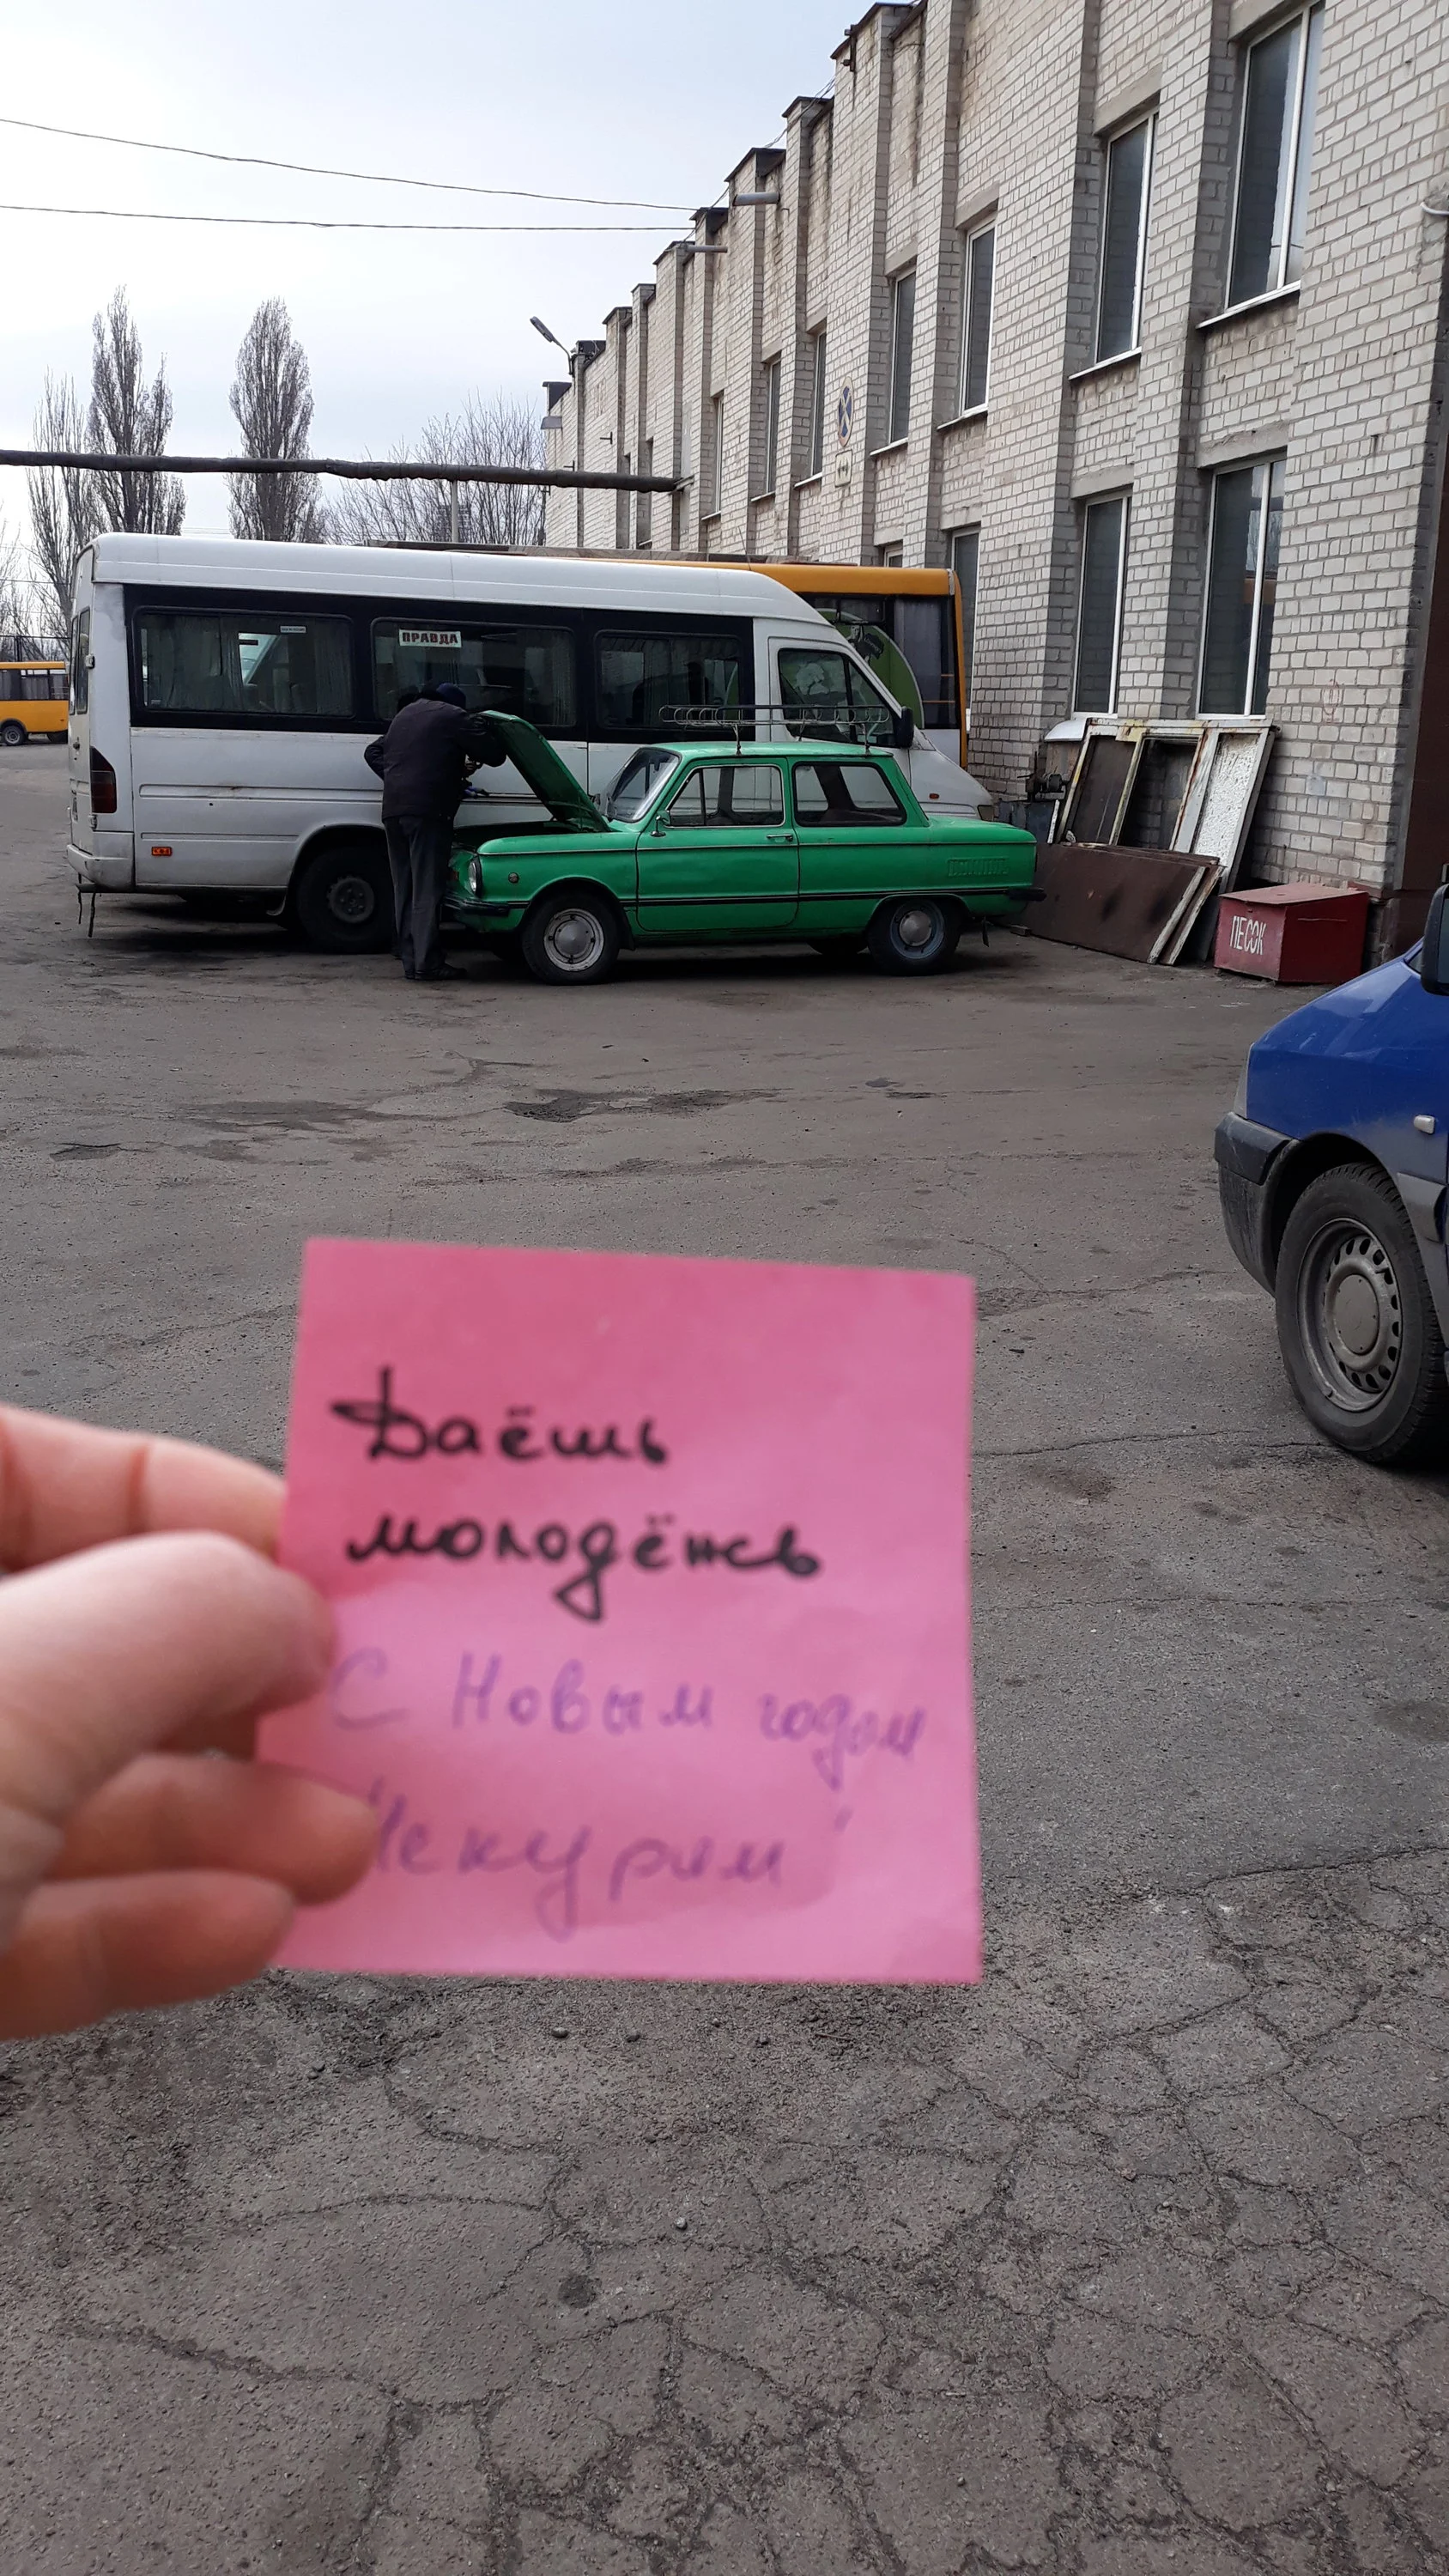 ПРАВДА
ПЕСОК
Даёшь
молодёжь
С Новым годом